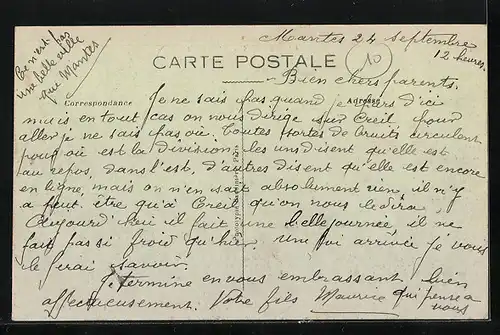 Mantes 24 septembre
12 heures.
Ce n'est pas
une belle ville
que Mantes
10
CARTE POSTALE
Bien chers parents.
Correspondance
Adresse
Je ne sais pas quand je pers d'ici
mais en tout cas on nous dirige sur Creil pour
aller je ne sais pas où. Toutes sortes de bruits circulent
pour où est la division, les uns disent qu'elle est
au repos, dans l'est, d'autres disent qu'elle est encore
en ligne, mais on n'en sait absolument rien, il n'y
a peut être qu'à Creil qu'on nous le dira.
Aujourd'hui il fait une belle journée, il ne
fait pas si froid qu'hier. Une foi arrivée je vous
le ferai savoir.
Je termine en vous embrassant bien
affectueusement. Votre fils Maurice qui pense a
vous